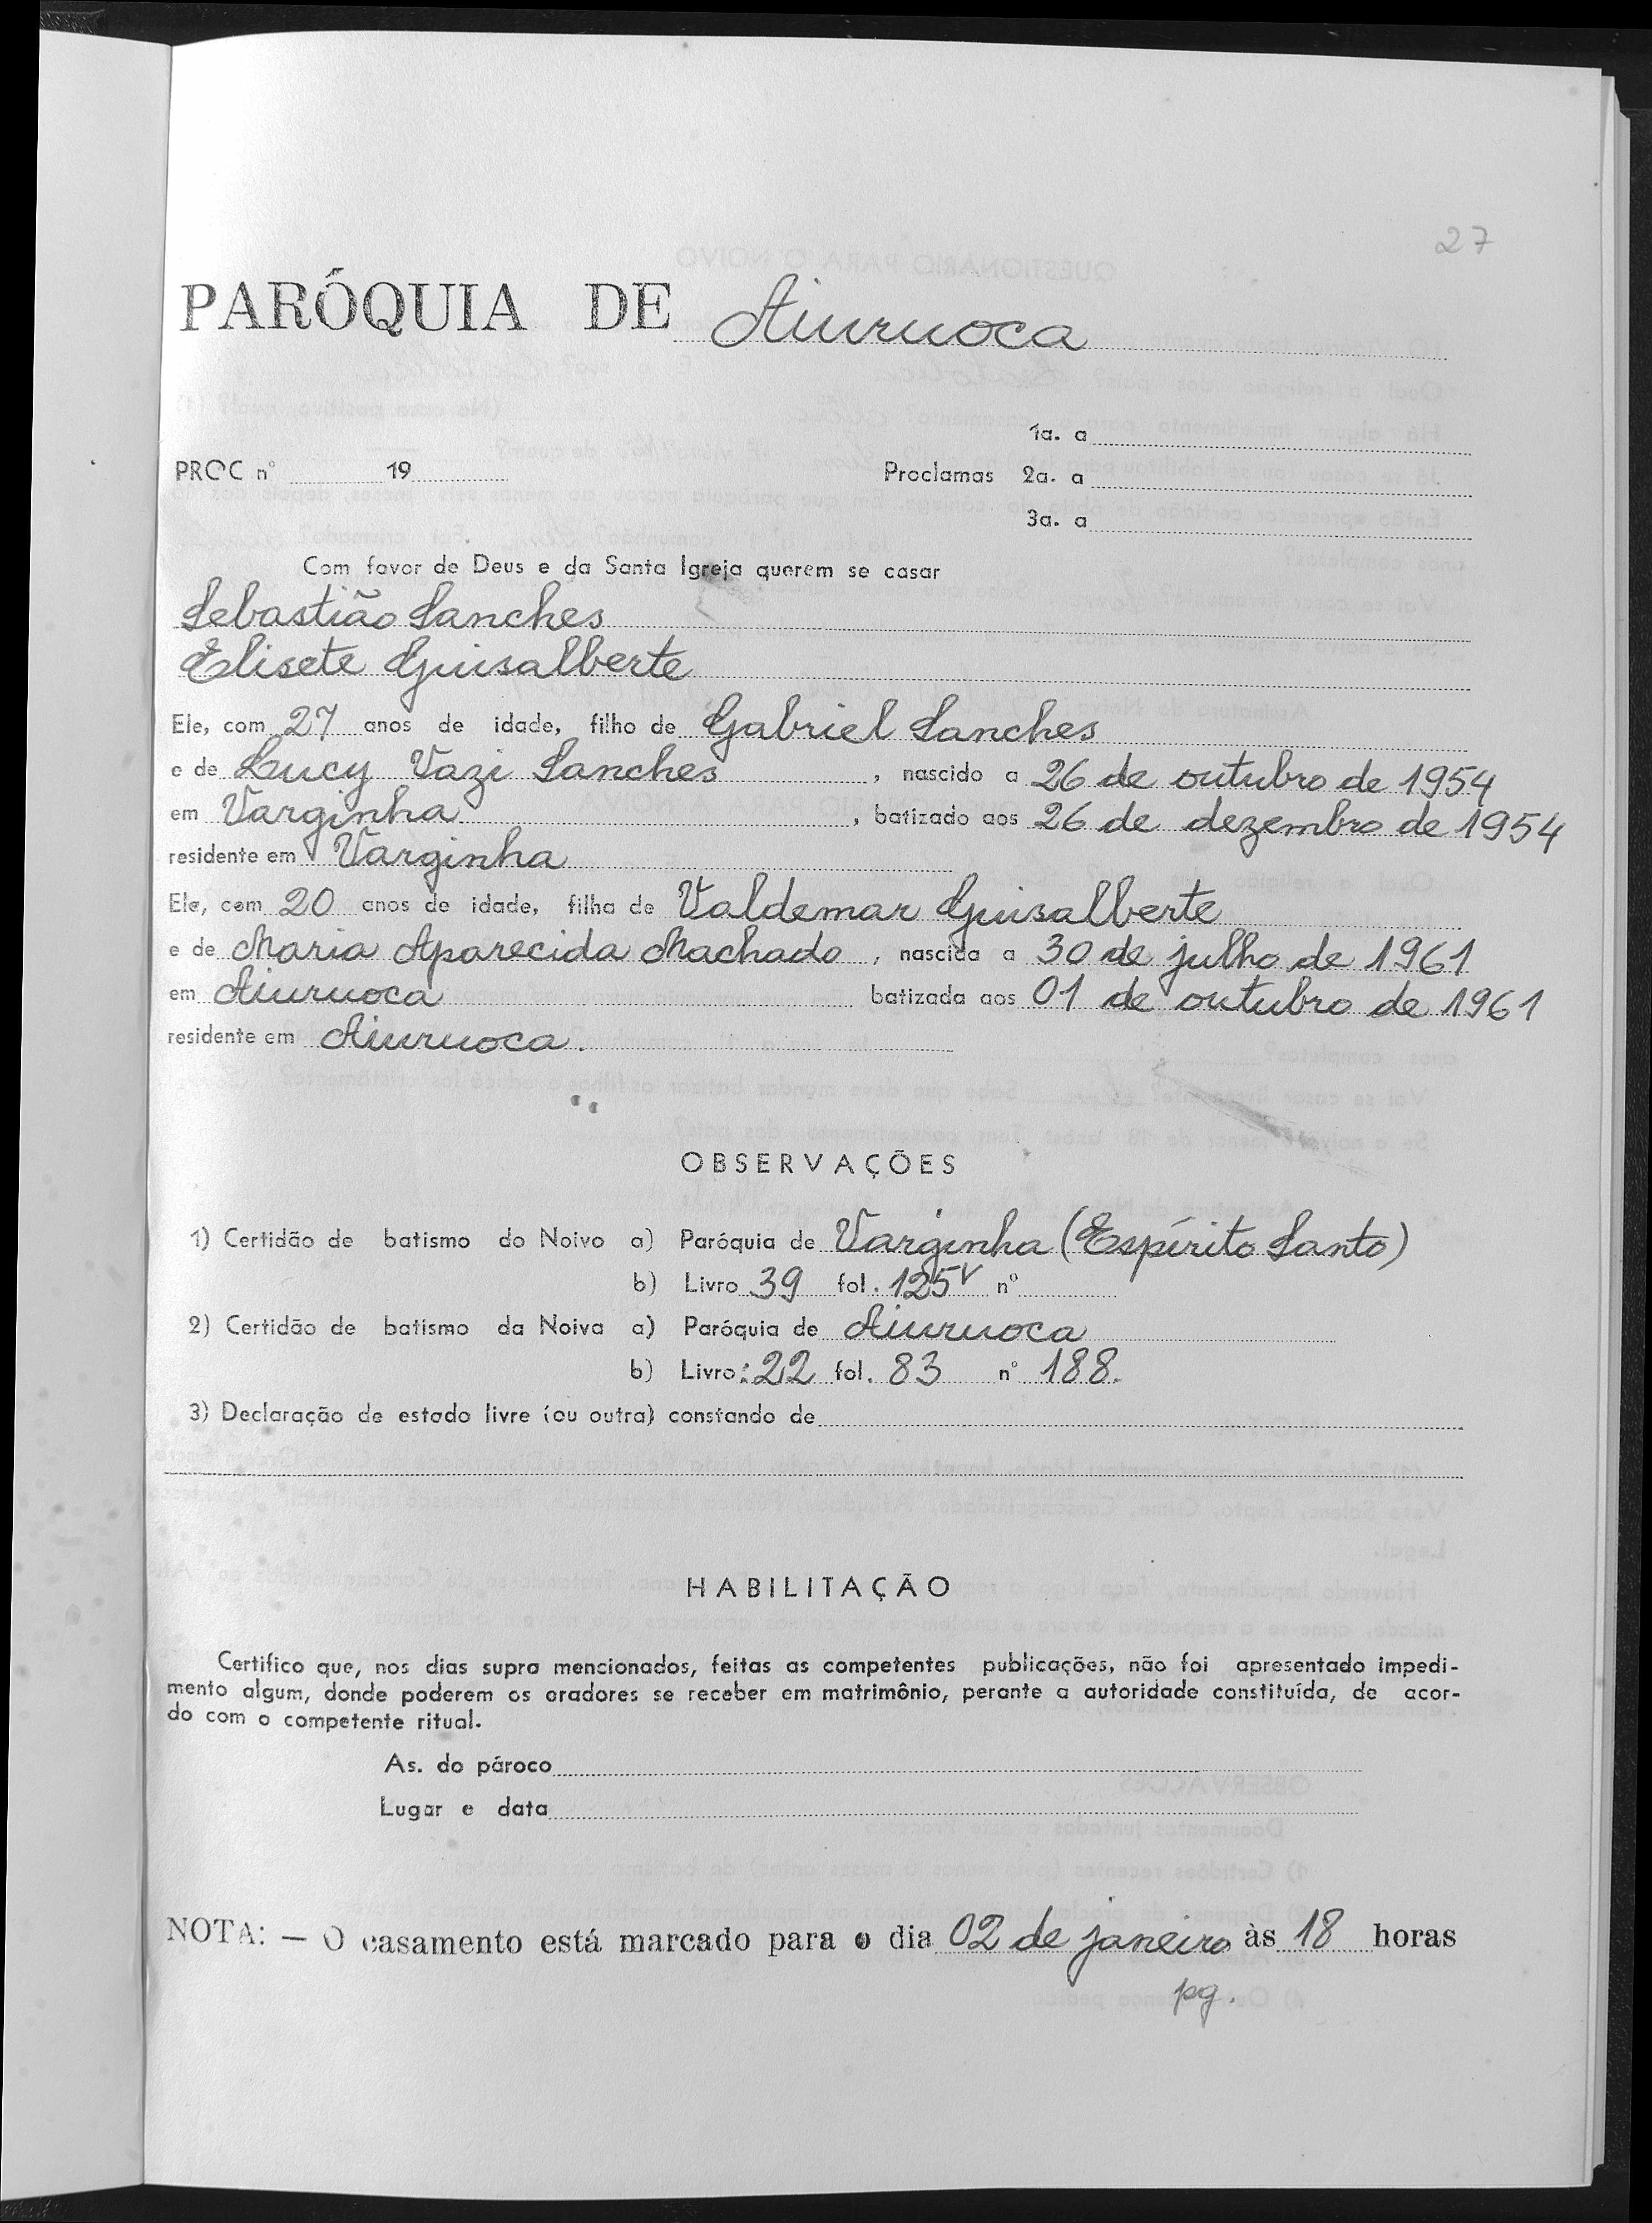 27
PARÓQUIA DE Aiuruoca
1a. a
PROC nº 19
Proclamas 2a. a
3a. a
Com favor de Deus e da Santa Igreja querem se casar
Sebastião Sanches
Elisete Guisalberte
Ele, com 27 anos de idade, filho de Gabriel Sanches
e de Lucy Vazi Sanches, nascido a 26 de outubro de 1954
em Varginha, batizado aos 26 de dezembro de 1954
residente em Varginha
Ela, com 20 anos de idade, filha de Valdemar Guisalberte
e de Maria Aparecida Machado, nascida a 30 de julho de 1961
em Aiuruoca batizada aos 01 de outubro de 1961
residente em Aiuruoca.
OBSERVAÇÕES
1) Certidão de batismo do Noivo a) Paróquia de Varginha (Espírito Santo)
b) Livro 39 fol. 125v nº
2) Certidão de batismo da Noiva a) Paróquia de Aiuruoca
b) Livro: 22 fol. 83 nº 188.
3) Declaração de estado livre (ou outra) constando de
HABILITAÇÃO
Certifico que, nos dias supra mencionados, feitas as competentes publicações, não foi apresentado impedi-
mento algum, donde poderem os oradores se receber em matrimônio, perante a autoridade constituída, de acor-
do com o competente ritual.
As. do pároco
Lugar e data
NOTA: — O casamento está marcado para o dia 02 de janeiro às 18 horas
pg.